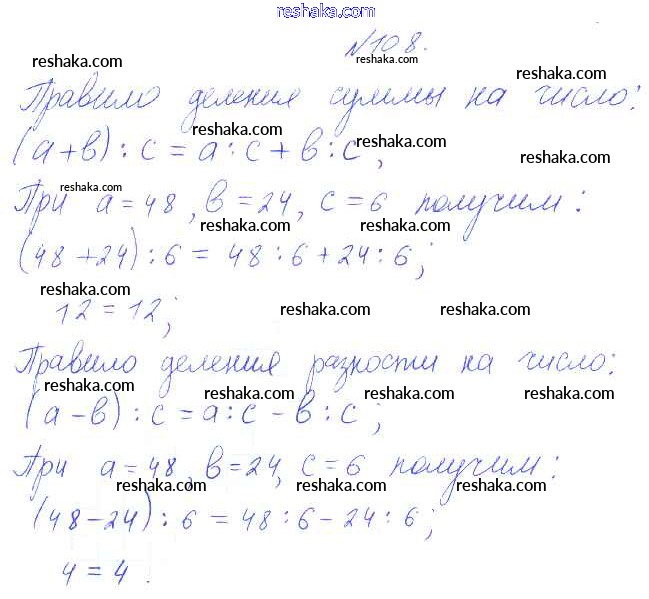 reshaka.com
№108.
reshaka.com reshaka.com reshaka.com
Правило деления суммы на число:
reshaka.com reshaka.com reshaka.com
(а+в) : с = а : с + в : с ;
reshaka.com
При а=48, в=24, с=6 получим :
reshaka.com reshaka.com
(48+24) : 6 = 48 : 6 + 24 : 6 ;
12 = 12 ;
reshaka.com reshaka.com
Правило деления разности на число:
reshaka.com reshaka.com reshaka.com reshaka.com
(а-в) : с = а : с - в : с ;
При а=48, в=24, с=6 получим :
reshaka.com reshaka.com reshaka.com
(48-24) : 6 = 48 : 6 - 24 : 6 ;
4 = 4 .